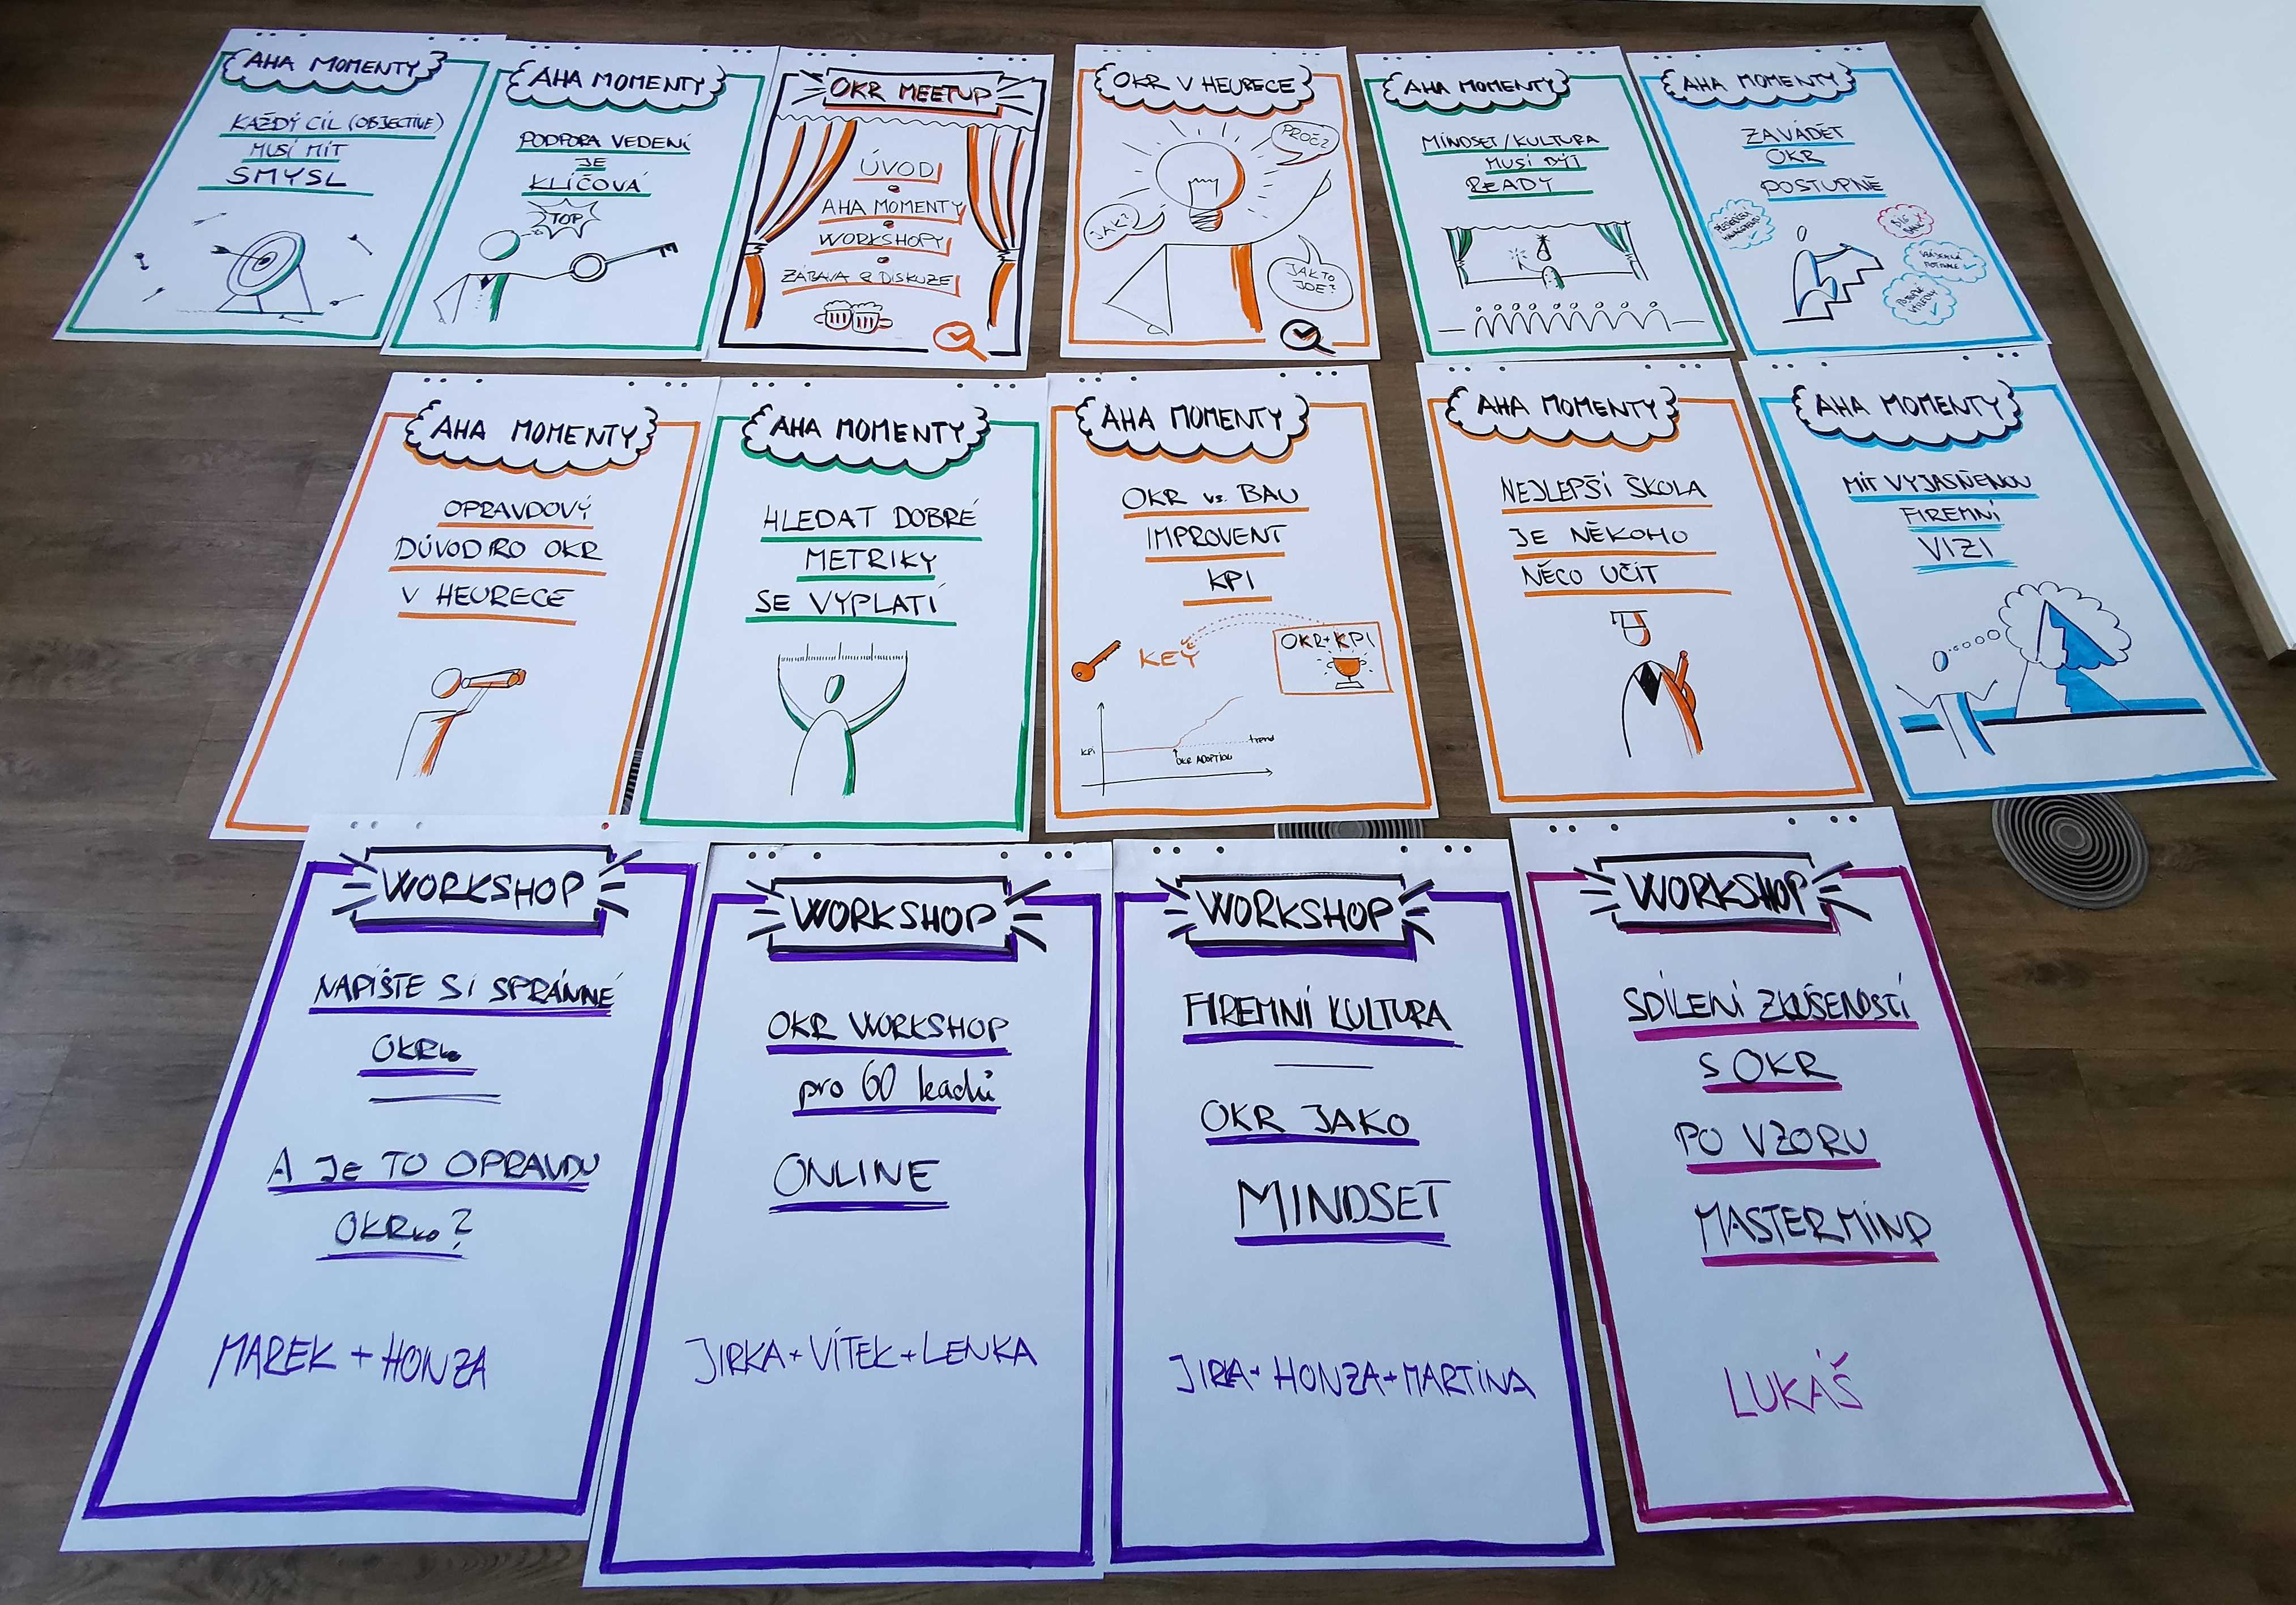 AHA MOMENTY
KAŽDÝ CÍL (OBJECTIVE)
MUSÍ MÍT
SMYSL
AHA MOMENTY
PODPORA VEDENÍ
JE
KLÍČOVÁ
TOP
OKR MEETUP
ÚVOD
AHA MOMENTY
WORKSHOPY
ZÁBAVA & DISKUZE
OKR V HEURECE
PROČ?
JAK?
JAK TO
JDE?
AHA MOMENTY
MINDSET/KULTURA
MUSÍ BÝT
READY
AHA MOMENTY
ZAVÁDĚT
OKR
POSTUPNĚ
BIG
BANG
AHA MOMENTY
OPRAVDOVÝ
DŮVOD PRO OKR
V HEURECE
AHA MOMENTY
HLEDAT DOBRÉ
METRIKY
SE VYPLATÍ
AHA MOMENTY
OKR vs. BAU
IMPROVENT
KPI
KEY
OKR+KPI
KPI
trend
OKR ADOPTION
AHA MOMENTY
NEJLEPŠÍ ŠKOLA
JE NĚKOHO
NĚCO UČIT
AHA MOMENTY
MÍT VYJASNĚNOU
FIREMNÍ
VIZI
WORKSHOP
NAPIŠTE SI SPRÁNNÉ
OKRko
A JE TO OPRAVDU
OKRko?
MAREK + HONZA
WORKSHOP
OKR WORKSHOP
pro 60 leadů
ONLINE
JIRKA + VÍTEK + LENKA
WORKSHOP
FIREMNÍ KULTURA
OKR JAKO
MINDSET
JIRKA + HONZA + MARTINA
WORKSHOP
SDÍLENÍ ZKUŠENOSTÍ
S OKR
PO VZORU
MASTERMIND
LUKÁŠ